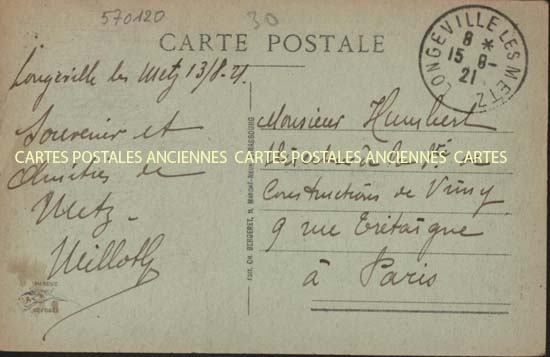 570120
30
CARTE POSTALE
LONGEVILLE LES METZ
8 *
15 8-
21
Longeville les Metz 13/8-21
Souvenir et
Amitiés de
Metz -
Monsieur Humbert
de la Sté
Constructions de Vimy
9 rue Tretaigne
à Paris
CARTES POSTALES ANCIENNES CARTES POSTALES ANCIENNES CARTES
CH. BERGERET,